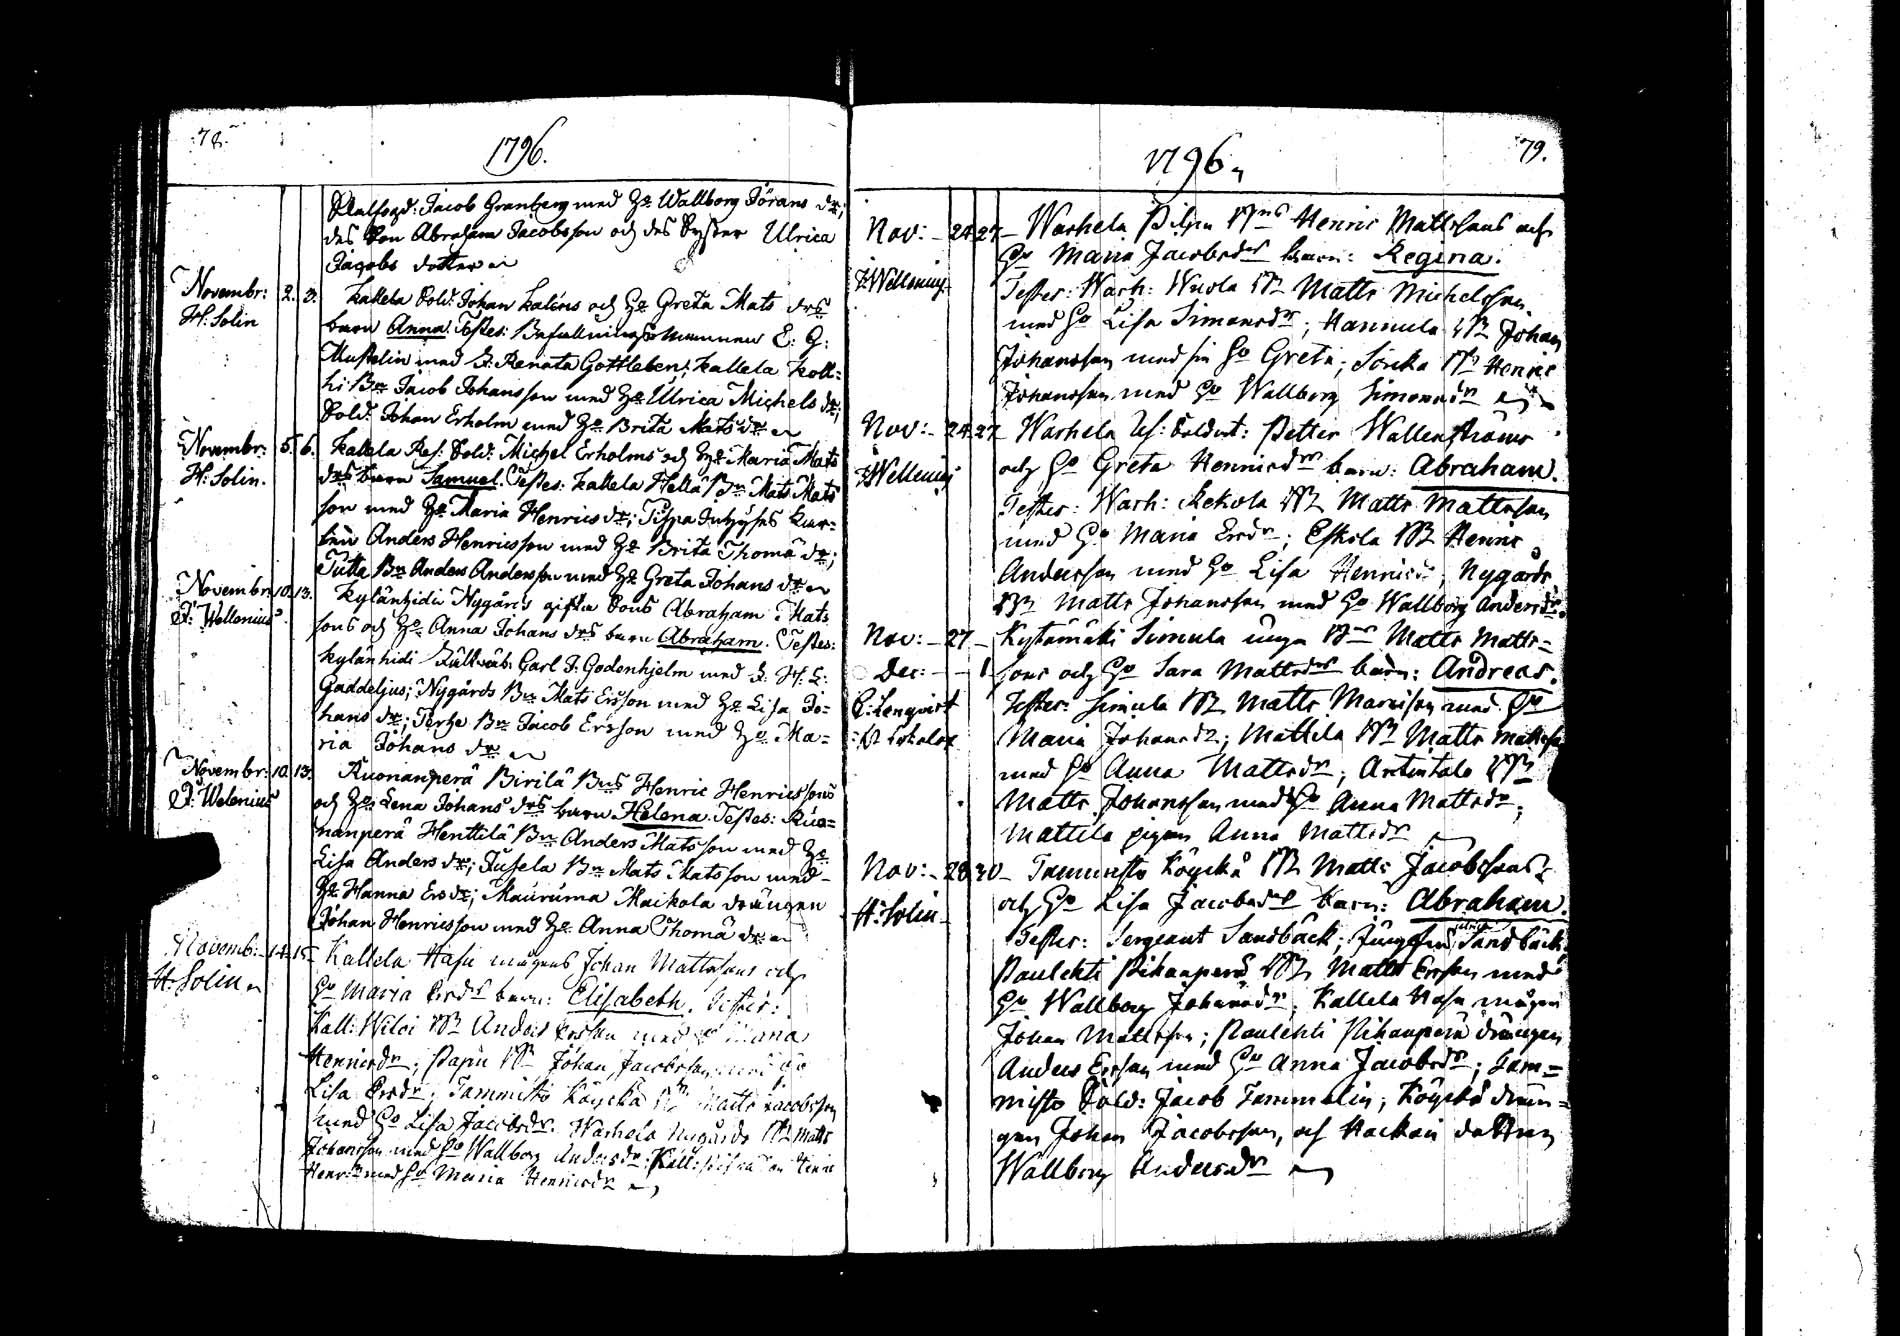 78.
1796.
Jacob Granberg med H:o Wallborg Jörans d:r;
des Son Abraham Jacobsson och des Syster Ulrica
Jacobs dotter
Novembr: 2. 3. Kallela Sold: Johan Kaléns och H:o Greta Mats d:rs
H: Solin
barn Anna. Testes: Befallningsmannen E: G:
Mustelin med J: Renata Gottleben; Kallela Koll=
hi B:n Jacob Johansson med H:o Ulrica Michels d:r;
Sold: Johan Erholm med H:o Brita Mats d:r
Novembr: 5. 6. Kallela Ref. Sold: Michel Erholms och H:o Maria Mats
H: Solin.
d:rs barn Samuel. Testes: Kallela Hellä B:n Mats Mats
son med H:o Maria Henrics d:r;
Anders Henricsson med H:o Brita Thomæ d:r;
Tutta B:n Anders Andersson med H:o Greta Johans d:r
Novembr: 10. 13. Kylänhidi Nygårds gifta Sons Abraham Mats
F: Wellenius.
sons och H:o Anna Johans d:rs barn Abraham. Testes:
Kylänhidi Carl F. Godenhjelm med J: H: L:
Gaddeljus; Nygårds B:n Mats Ersson med H:o Lisa Jo=
hans d:r; B:n Jacob Ersson med H:o Ma=
ria Johans d:r
Novembr: 10. 13. Ruonanperä Birilä B:ns Henric Henricssons
F: Welenius
och H:o Lena Johans d:rs barn Helena. Testes: Ruo=
nanperä Henttilä B:n Anders Matsson med H:o
Lisa Anders d:r; B:n Mats Matsson med
H:o Hanna Ers d:r; Mauruma Maikola drängen
Johan Henricsson med H:o Anna Thomæ d:r
Novemb: 14. 15. Kallela Hasu mågens Johan Mattssons och
H: Solin
H:o Maria Ersd:rs barn: Elisabeth. Testes:
Kall: B:n Anders Ersson med H:o Maria
Henricsd:r; Papu B:n Johan Jacobsson med H:o
Lisa Ersd:r; Tammisto Köyckä B:n Matts Jacobsson
med H:o Lisa Jacobsd:r. Warhela Nygårds B:n Matts
Johansson med H:o Wallborg Andersd:r; Kall:
med H:o Maria Henricsd:r
1796
79.
Nov: 24. 27. Warhela Pilpa B:ns Henric Mattssons och
H:o Maria Jacobsd:rs barn: Regina.
F: Wellenius
Testes: Warh: B:n Matts Michelsson
med H:o Lisa Simonsd:r; Hannula B:n Johan
Johansson med sin H:o Greta; B:n Henric
Johansson med H:o Wallborg Simonsd:r
Nov: 24. 27. Warhela Petter Wallenströms
och H:o Greta Henricsd:rs barn: Abraham.
F: Wellenius
Testes: Warh: Rekola B:n Matts Mattsson
med H:o Maria Ersd:r; Eskola B:n Henric
Andersson med H:o Lisa Henricsd:r; Nygårds
B:n Matts Johansson med H:o Wallborg Andersd:r.
Nov: 27 Kystämäki Simula unga B:ns Matts Matts=
Dec: 1 sons och H:o Sara Mattsd:rs barn: Andreas.
Testes: Simula B:n Matts med H:o
Maria Johansd:r; Mattila B:n Matts Mattsson
med H:o Anna Mattsd:r; Anttitalo B:n
Matts Johansson med H:o Anna Mattsd:r;
Mattila pigan Anna Mattsd:r
Nov: 28. 30. Tammisto Köyckä B:n Matts Jacobssons
och H:o Lisa Jacobsd:rs barn: Abraham.
H: Solin
Testes: Sergeant Sandbäck; Jungfru Sandbäck
Paulehti Pihanperä B:n Matts Ersson med
H:o Wallborg Johansd:r; Kallela Hasu mågen
Johan Mattsson; Paulehti Pihanperä drängen
Anders Ersson med H:o Anna Jacobsd:r; Tam=
misto Sold: Jacob Tammelin; Köyckä drän=
gen Johan Jacobsson, och dottren
Wallborg Andersd:r